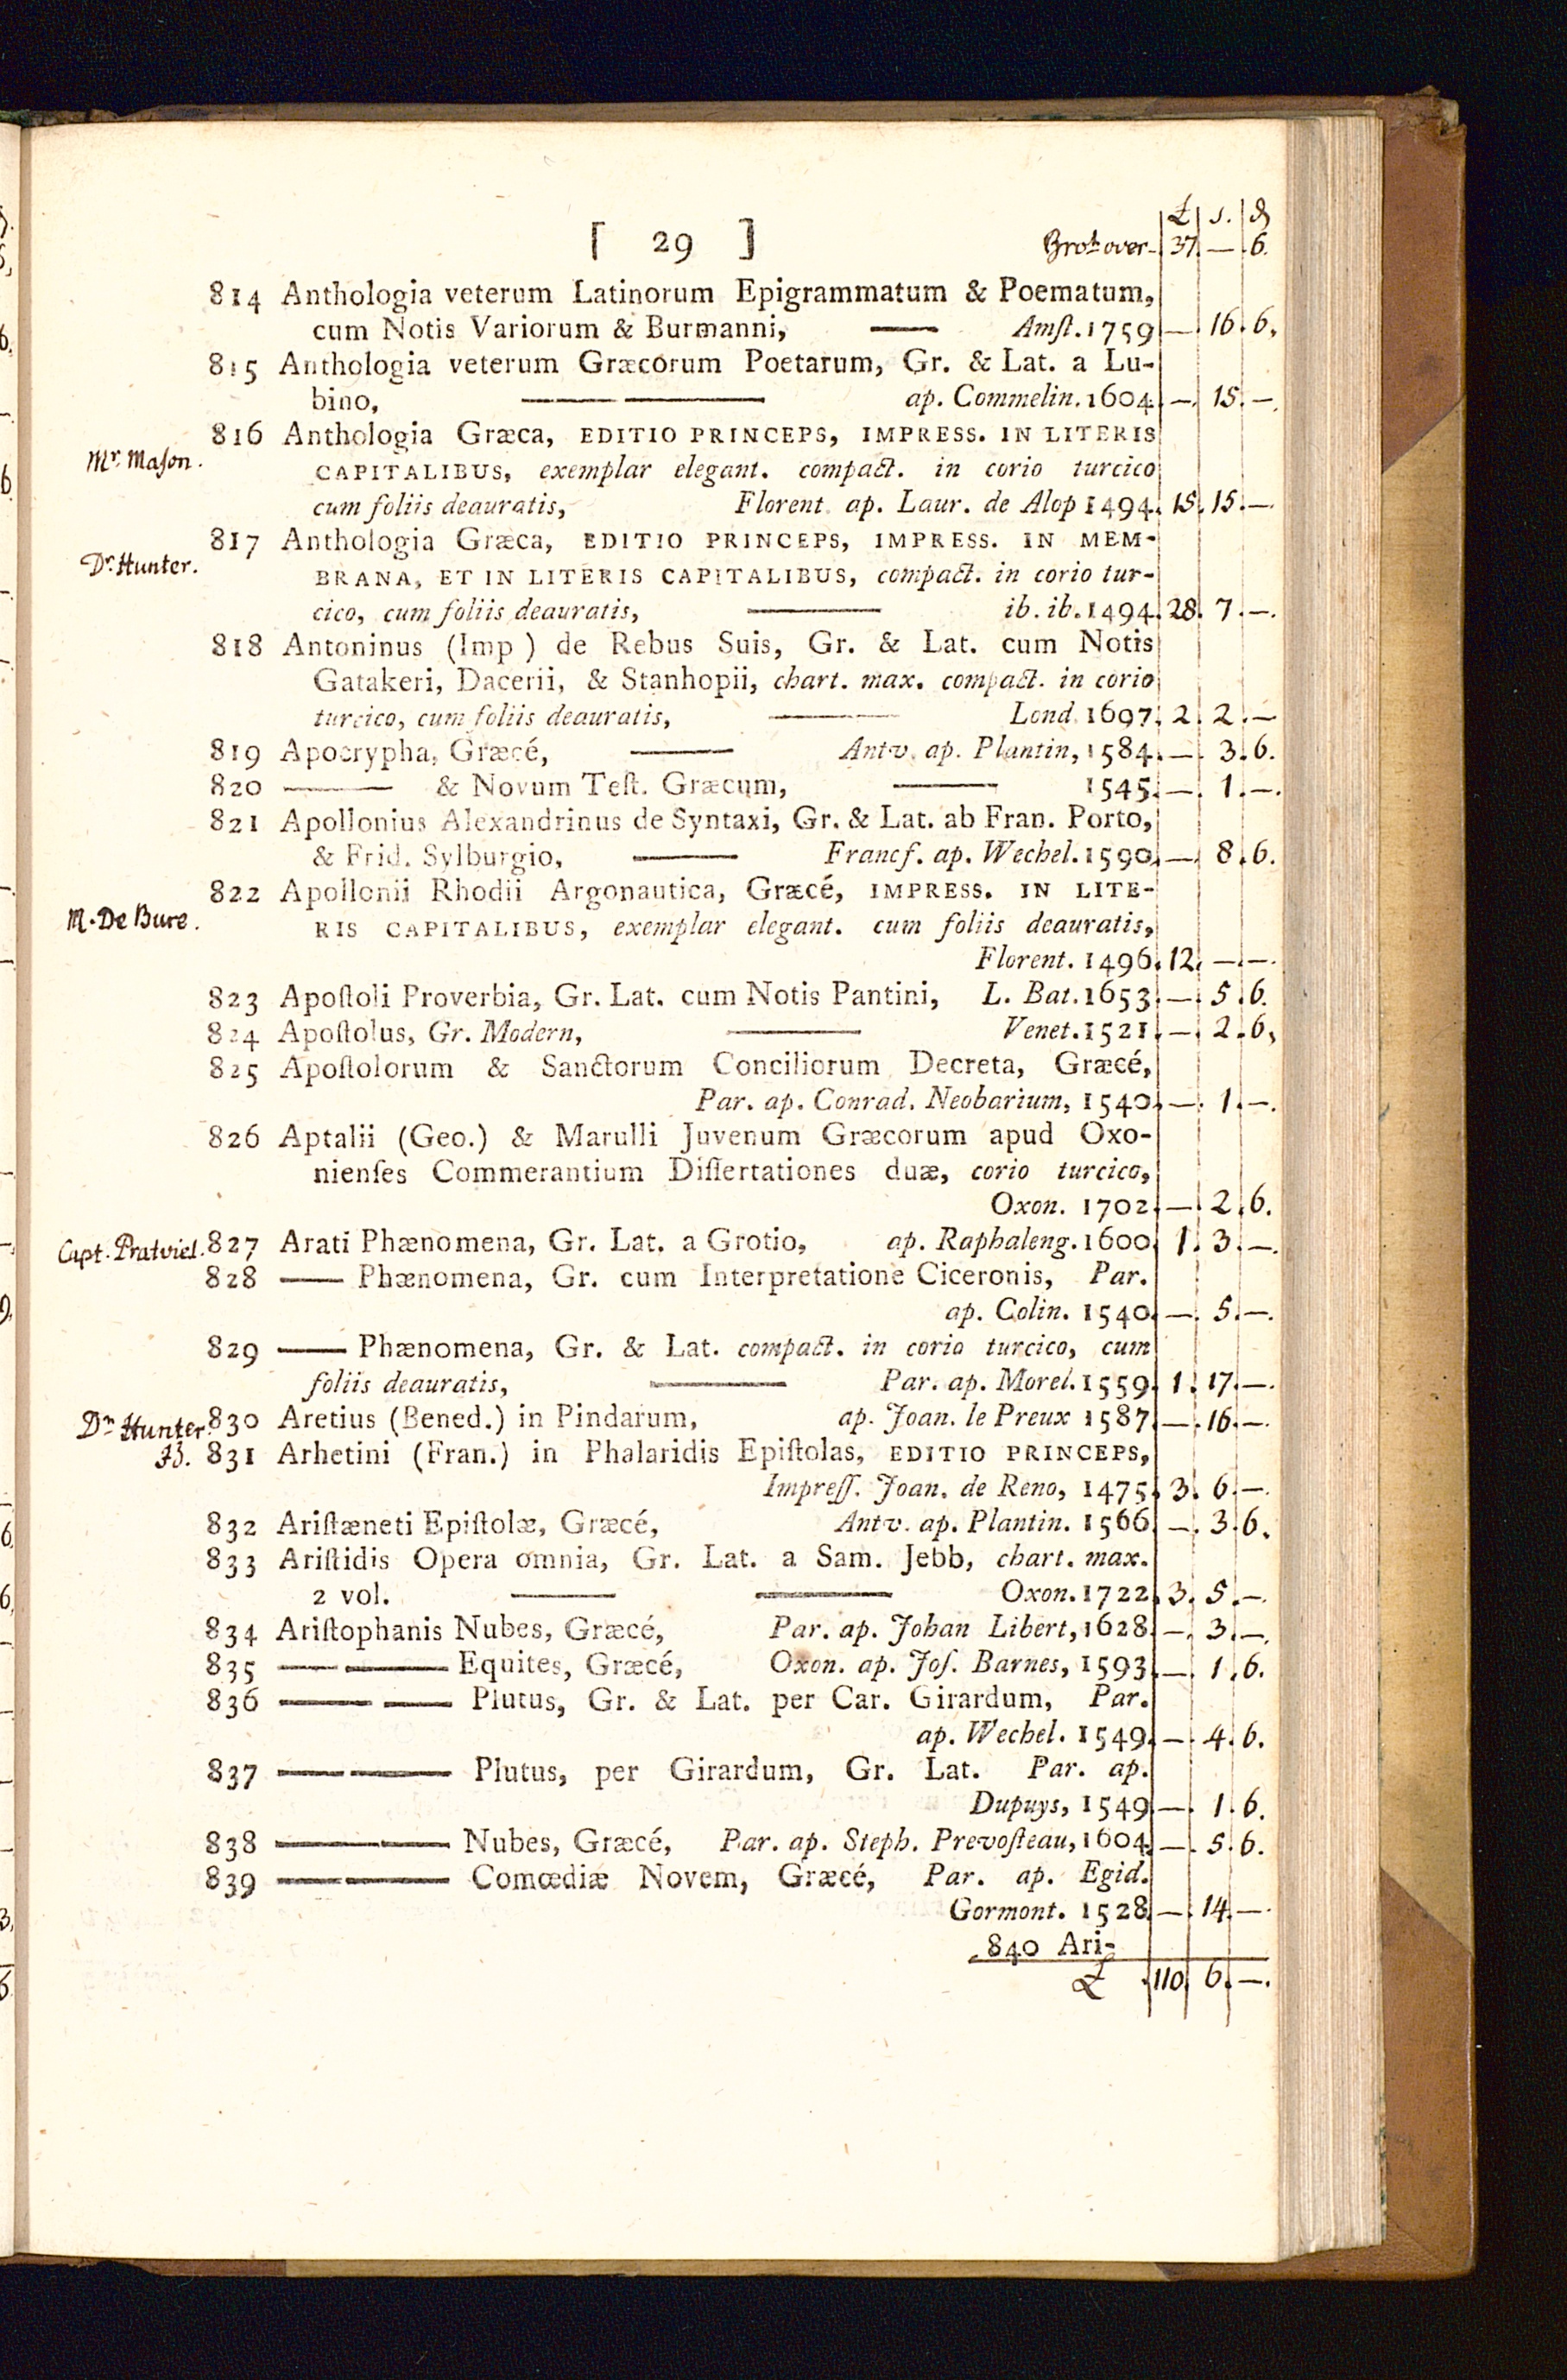 £ s. d
[ 29 ] Brot. over- 37. — . 6.
814 Anthologia veterum Latinorum Epigrammatum & Poematum,
cum Notis Variorum & Burmanni, —— Amſt. 1759 — . 16 . 6.
815 Anthologia veterum Græcorum Poetarum, Gr. & Lat. a Lu-
bino, —— —— ap. Commelin. 1604 — . 15 . —.
816 Anthologia Græca, EDITIO PRINCEPS, IMPRESS. IN LITERIS
Mr. Maſon. CAPITALIBUS, exemplar elegant. compact. in corio turcico
cum foliis deauratis, Florent. ap. Laur. de Alop 1494. 15. 15 . —.
817 Anthologia Græca, EDITIO PRINCEPS, IMPRESS. IN MEM-
Dr. Hunter. BRANA, ET IN LITERIS CAPITALIBUS, compact. in corio tur-
cico, cum foliis deauratis, —— ib. ib. 1494. 28. 7 . —.
818 Antoninus (Imp ) de Rebus Suis, Gr. & Lat. cum Notis
Gatakeri, Dacerii, & Stanhopii, chart. max. compact. in corio
turcico, cum foliis deauratis, —— Lond. 1697. 2 . 2 . —
819 Apocrypha, Græcé, —— Antv. ap. Plantin, 1584. — . 3 . 6.
820 —— & Novum Teſt. Græcum, —— 1545. — . 1 . —.
821 Apollonius Alexandrinus de Syntaxi, Gr. & Lat. ab Fran. Porto,
& Frid. Sylburgio, —— Francf. ap. Wechel. 1590. — . 8 . 6.
822 Apollonii Rhodii Argonautica, Græcé, IMPRESS. IN LITE-
M. De Bure. RIS CAPITALIBUS, exemplar elegant. cum foliis deauratis,
Florent. 1496. 12. — . —.
823 Apoſtoli Proverbia, Gr. Lat. cum Notis Pantini, L. Bat. 1653. — . 5 . 6.
824 Apoſtolus, Gr. Modern, —— Venet. 1521. — . 2 . 6.
825 Apoſtolorum & Sanctorum Conciliorum Decreta, Græcé,
Par. ap. Conrad. Neobarium, 1540. — . 1 . —.
826 Aptalii (Geo.) & Marulli Juvenum Græcorum apud Oxo-
nienſes Commerantium Diſſertationes duæ, corio turcico,
Oxon. 1702. — . 2 . 6.
Capt. Pratviel. 827 Arati Phænomena, Gr. Lat. a Grotio, ap. Raphaleng. 1600. 1 . 3 . —.
828 —— Phænomena, Gr. cum Interpretatione Ciceronis, Par.
ap. Colin. 1540. — . 5 . —.
829 —— Phænomena, Gr. & Lat. compact. in corio turcico, cum
foliis deauratis, —— Par. ap. Morel. 1559. 1 . 17 . —.
Dr. Hunter. 830 Aretius (Bened.) in Pindarum, ap. Joan. le Preux 1587. — . 16 . —.
Ib. 831 Arhetini (Fran.) in Phalaridis Epiſtolas, EDITIO PRINCEPS,
Impreſſ. Joan. de Reno, 1475. 3 . 6 . —.
832 Ariſtæneti Epiſtolæ, Græcé, Antv. ap. Plantin. 1566. — . 3 . 6.
833 Ariſtidis Opera omnia, Gr. Lat. a Sam. Jebb, chart. max.
2 vol. —— —— Oxon. 1722. 3 . 5 . —.
834 Ariſtophanis Nubes, Græcé, Par. ap. Johan Libert, 1628. — . 3 . —.
835 —— —— Equites, Græcé, Oxon. ap. Joſ. Barnes, 1593. — . 1 . 6.
836 —— —— Plutus, Gr. & Lat. per Car. Girardum, Par.
ap. Wechel. 1549. — . 4 . 6.
837 —— —— Plutus, per Girardum, Gr. Lat. Par. ap.
Dupuys, 1549. — . 1 . 6.
838 —— —— Nubes, Græcé, Par. ap. Steph. Prevoſteau, 1604. — . 5 . 6.
839 —— —— Comœdiæ Novem, Græcé, Par. ap. Egid.
Gormont. 1528. — . 14 . —.
840 Ari-
£ 110. 6 . —.